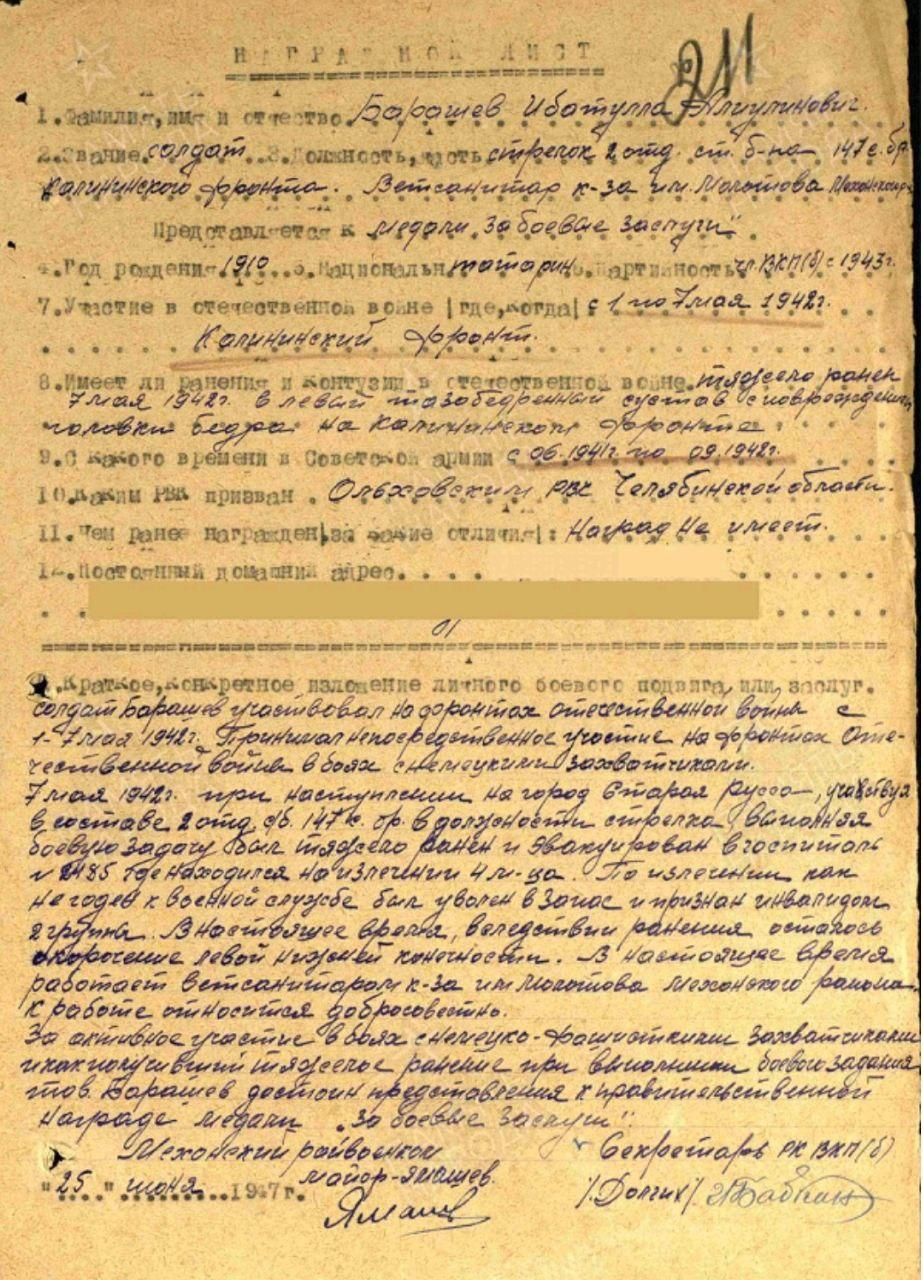 НАГРАДНОЙ ЛИСТ
211
1. Фамилия, имя и отчество Барашев Ибатулла
2. Звание солдат 3. Должность, часть стрелок 2 отд. ст. б-на 147 с. бр.
Калининского фронта. Ветсанитар к-за им. Молотова Мехонского
Представляется к медали "За боевые заслуги"
4. Год рождения 1910 5. Национальн татарин 6. Партийность чл. ВКП(б) с 1943г.
7. Участие в отечественной войне /где, когда/ с 1 по 7 мая 1942г.
Калининский фронт.
8. Имеет ли ранения и контузии в отечественной войне. тяжело ранен
7 мая 1942г. в левый тазобедренный сустав с повреждением
головки бедра на Калининском фронте
9. С какого времени в Советской армии с 06.1941г. по 09.1942г.
10. Каким РВК призван. Ольховским РВК Челябинской области.
11. Чем ранее награжден /за какие отличия/: наград не имеет.
12. Постоянный домашний адрес.
1. Краткое, конкретное изложение личного боевого подвига или заслуг.
солдат Барашев участвовал на фронтах отечественной война с
1-7 мая 1942г. Принимал непосредственное участие на фронтах Оте-
чественной война в боях с немецкими захватчиками.
7 мая 1942г. при наступлении на город Старая Русса, участвуя
в составе 2 отд. с/б. 147 с. бр. в должности стрелка, выполняя
боевую задачу был тяжело ранен и эвакуирован в госпиталь
№ 2485 где находился на излечении 4 м-ца. По излечении как
не годен к военной службе был уволен в запас и признан инвалидом
2 группы. В настоящее время, вследствии ранения осталось
укорочение левой нижней конечности. В настоящее время
работает ветсанитаром к-за им Молотова Мехонского района.
к работе относится добросовестно.
За активное участие в боях с немецко-фашисткими захватчиками
и как получивший тяжелое ранение при выполнении боевого задания
тов. Барашев достоин представления к правительственной
награде медали "За боевые заслуги".
Мехонский райвоенком Секретарь РК ВКП(б)
майор-Ямашев. /Долгих/.
"25" июня 1947г.